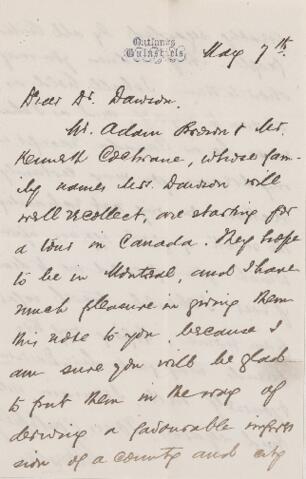 May 7th.
Dear Dr. Dawson.
Mr. Adam Brown & Mr.
Kenneth Cochrane, whose fam-
ily names Mrs. Dawson will
well recollect, are starting for
a tour in Canada. They hope
to be in Montreal, and I have
much pleasure in giving them
this note to you, because I
am sure you will be glad
to put them in the way of
deriving a favourable impres
sion of a country and city